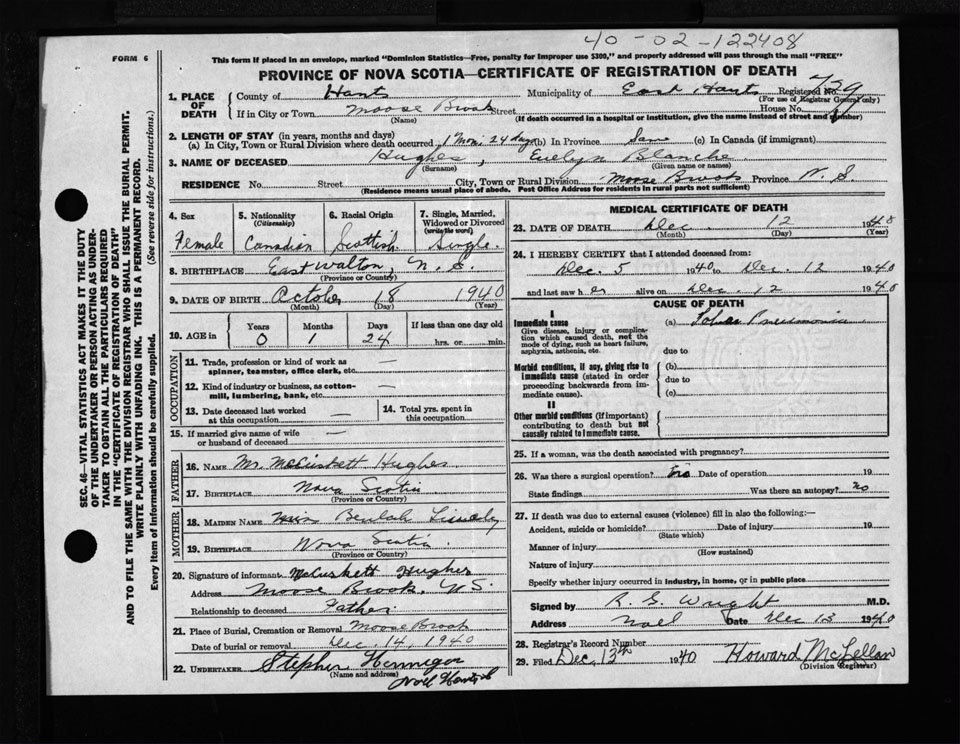 40-02-122408
FORM 6
This form if placed in an envelope, marked "Dominion Statistics—Free, penalty for improper use $300," and properly addressed will pass through the mail "FREE"
PROVINCE OF NOVA SCOTIA—CERTIFICATE OF REGISTRATION OF DEATH
1. PLACE OF DEATH County of Hants Municipality of East Hants Registered No.
(For use of Registrar General only)
If in City or Town Moose Brook Street House No.
(Name) (If death occurred in a hospital or institution, give the name instead of street and number)
2. LENGTH OF STAY (in years, months and days)
(a) In City, Town or Rural Division where death occurred 1 Mon. 24 days (b) In Province Same (c) In Canada (if immigrant)
3. NAME OF DECEASED Hughes, Evelyn Blanche
(Surname) (Given name or names)
RESIDENCE No. Street City, Town or Rural Division Moose Brook Province N. S.
(Residence means usual place of abode. Post Office Address for residents in rural parts not sufficient)
4. Sex Female
5. Nationality (Citizenship) Canadian
6. Racial Origin Scottish
7. Single, Married, Widowed or Divorced (write the word) Single
8. BIRTHPLACE East Walton, N. S.
(Province or Country)
9. DATE OF BIRTH October 18 1940
(Month) (Day) (Year)
10. AGE in Years Months Days If less than one day old
0 1 24 hrs. or min.
OCCUPATION
11. Trade, profession or kind of work as spinner, teamster, office clerk, etc. —
12. Kind of industry or business, as cotton-mill, lumbering, bank, etc. —
13. Date deceased last worked at this occupation —
14. Total yrs. spent in this occupation
15. If married give name of wife or husband of deceased —
FATHER
16. NAME Mr. McCuskett Hughes
17. BIRTHPLACE Nova Scotia
(Province or Country)
MOTHER
18. MAIDEN NAME Miss Beulah
19. BIRTHPLACE Nova Scotia
(Province or Country)
20. Signature of informant McCuskett Hughes
Address Moose Brook, N.S.
Relationship to deceased Father
21. Place of Burial, Cremation or Removal Moose Brook
Date of burial or removal Dec. 14, 1940
22. UNDERTAKER Stephen Hennigar
(Name and address)
Noel
MEDICAL CERTIFICATE OF DEATH
23. DATE OF DEATH Dec. 12
(Month) (Day) (Year)
24. I HEREBY CERTIFY that I attended deceased from:
Dec. 5 1940 to Dec. 12 1940
and last saw her alive on Dec. 12 1940
CAUSE OF DEATH
I
Immediate cause
Give disease, injury or complication which caused death, not the mode of dying, such as heart failure, asphyxia, asthenia, etc.
(a) Lobar Pneumonia
due to
Morbid conditions, if any, giving rise to immediate cause (stated in order proceeding backwards from immediate cause).
(b)
due to
(c)
II
Other morbid conditions (if important) contributing to death but not causally related to immediate cause.
25. If a woman, was the death associated with pregnancy?
26. Was there a surgical operation? No Date of operation 19
State findings Was there an autopsy? no
27. If death was due to external causes (violence) fill in also the following:—
Accident, suicide or homicide? Date of injury 19
(State which)
Manner of injury
(How sustained)
Nature of injury
Specify whether injury occurred in industry, in home, or in public place
Signed by R. G. Wright M.D.
Address Noel Date Dec 13 1940
28. Registrar's Record Number
29. Filed Dec. 13th 1940 Howard McLellan
(Division Registrar)
SEC. 46—VITAL STATISTICS ACT MAKES IT THE DUTY
OF THE UNDERTAKER OR PERSON ACTING AS UNDER-
TAKER TO OBTAIN ALL THE PARTICULARS REQUIRED
IN THE "CERTIFICATE OF REGISTRATION OF DEATH"
AND TO FILE THE SAME WITH THE DIVISION REGISTRAR WHO SHALL ISSUE THE BURIAL PERMIT.
WRITE PLAINLY WITH UNFADING INK. THIS IS A PERMANENT RECORD.
Every item of information should be carefully supplied. (See reverse side for instructions.)